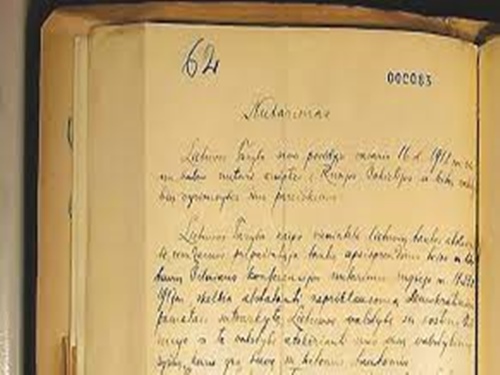 62
000083
Nutarimas
Lietuvos Taryba savo posėdyje vasario 16 d. 1918 m. vie
nu balsu nutarė kreiptis į Rusijos Vokietijos ir kitų
vyriausybes šiuo pareiškimu:
Lietuvos Taryba kaipo vienintelė lietuvių tautos
tautų apsisprendimo teise ir
Vilniaus konferencijos nutarimu rugsėjo m. 18-23 d.
skelbia atstatanti nepriklausomą
pamatais sutvarkytą Lietuvos valstybę su sostine
ir tą valstybę atskirianti nuo visų valstybinių
ryšių, kurie yra buvę su kitomis tautomis.